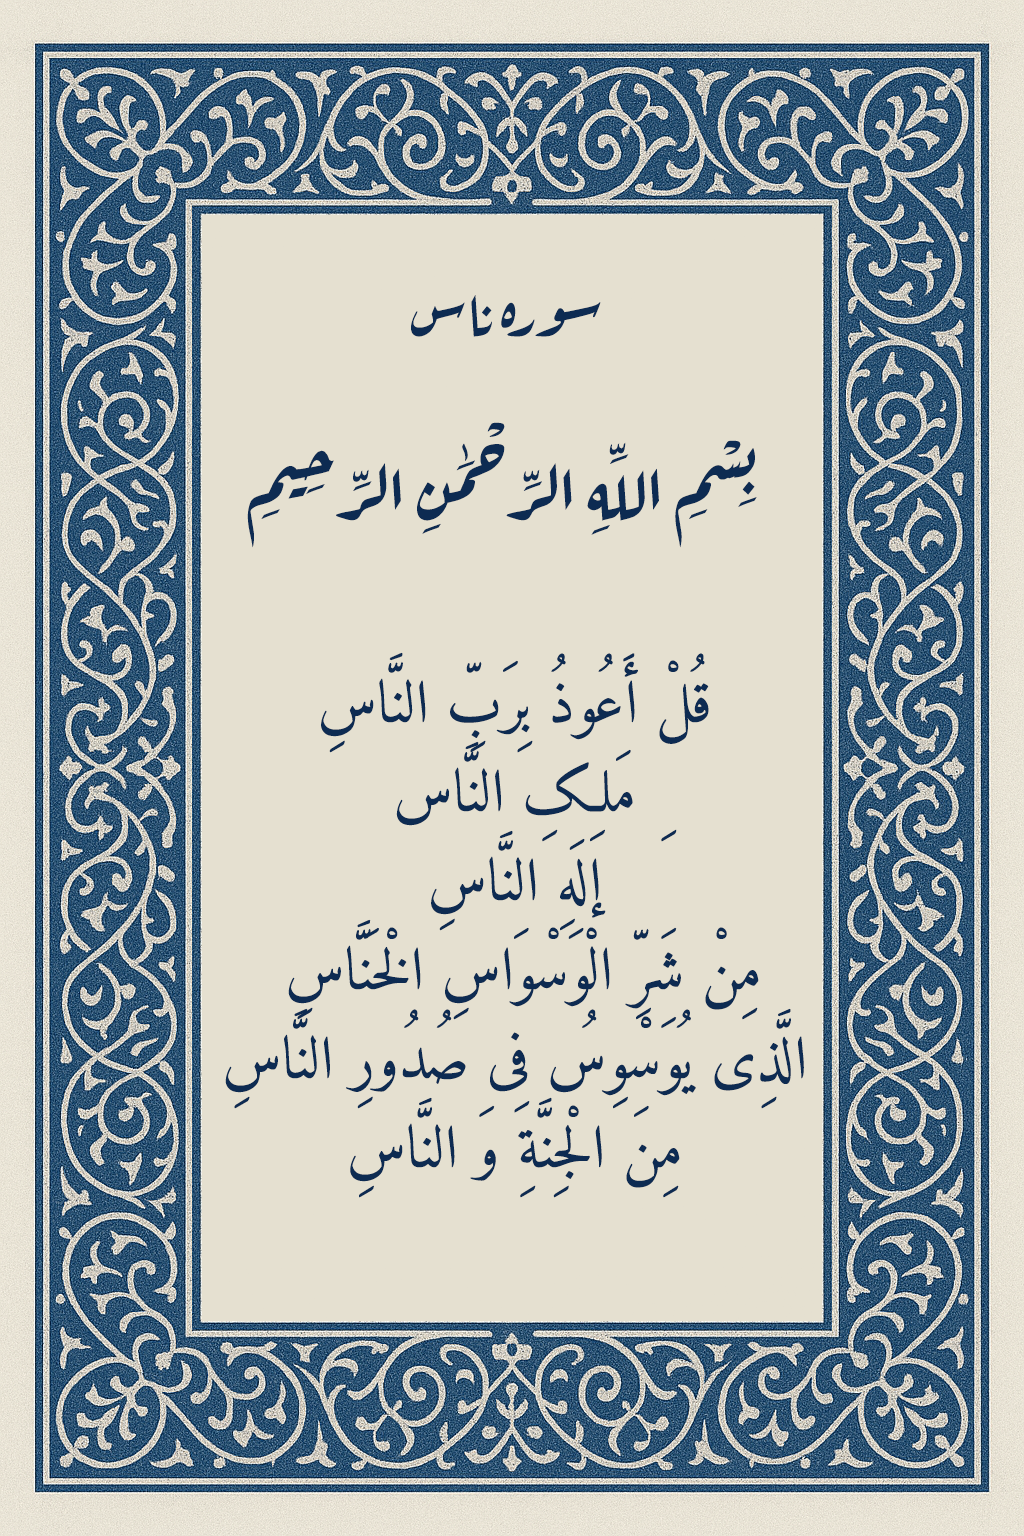 سوره ناس
بِسْمِ اللهِ الرَّحْمَٰنِ الرَّحِيمِ
قُلْ أَعُوذُ بِرَبِّ النَّاسِ
مَلِکِ النَّاس
إِلَهِ النَّاسِ
مِنْ شَرِّ الْوَسْوَاسِ الْخَنَّاسِ
الَّذِی يُوَسْوِسُ فِی صُدُورِ النَّاسِ
مِنَ الْجِنَّةِ وَ النَّاسِ